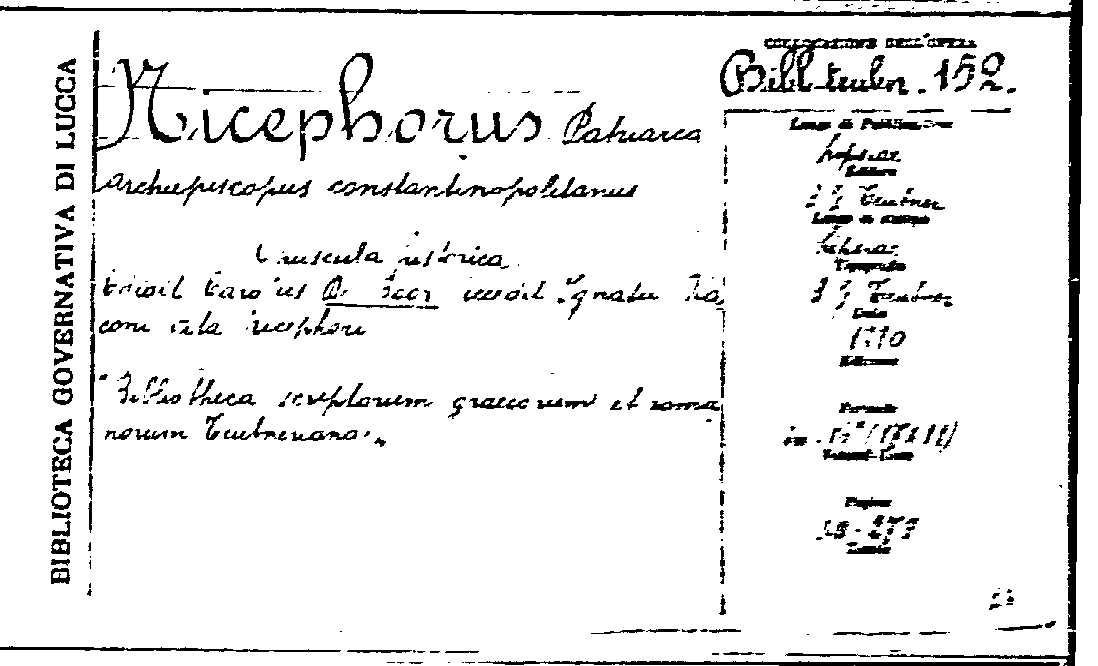 BIBLIOTECA GOVERNATIVA DI LUCCA
Nicephorus Patriarca
archiepiscopus constantinopolitanus
Opuscula historica
Edidit Carolus De Boor accedit Ignatii Dia
coni vita Nicephori
"Bibliotheca scriptorum graecorum et roma
norum Teubneriana"
COLLOCAZIONE DELL'OPERA
Bibl. teubn. 152.
Luogo di Pubblicazione
Lipsiae
Editore
B G Teubner
Luogo di stampa
Lipsiae
Tipografo
B G Teubner
Data
Edizione
Formato
Pagine